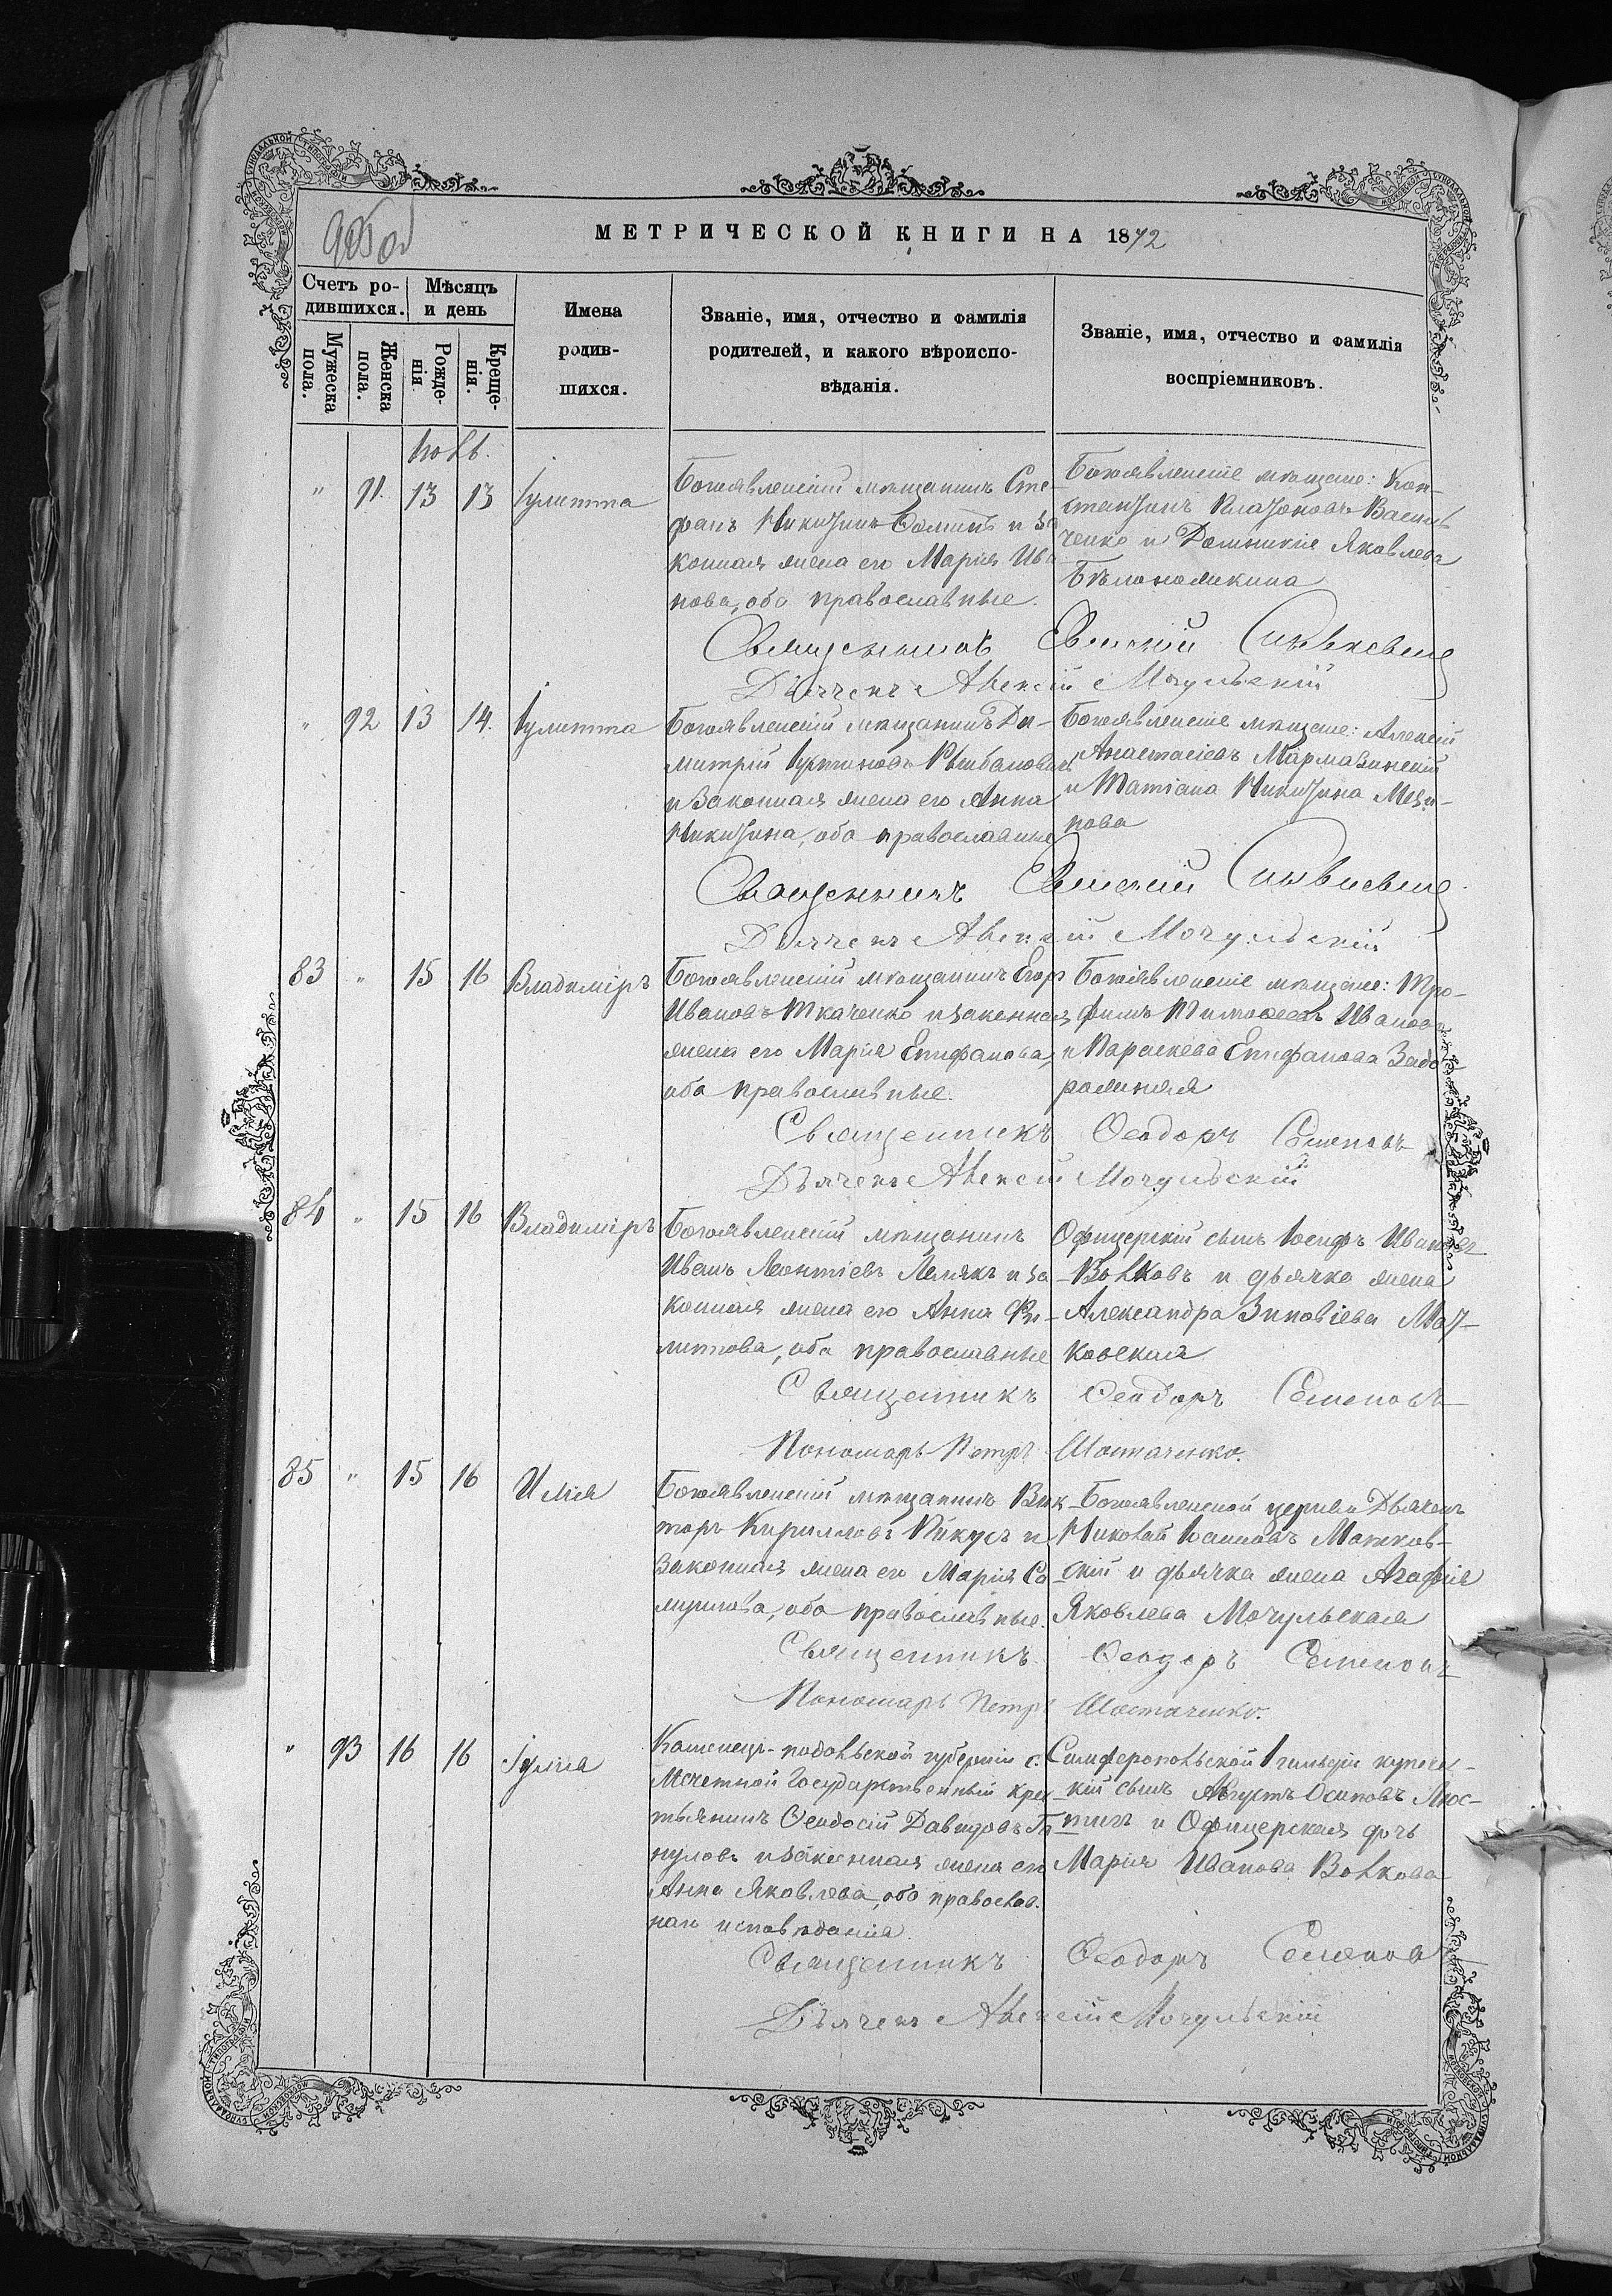 МЕТРИЧЕСКОЙ КНИГИ НА 1872
Счетъ ро-
дившихся.
Мѣсяцъ
и день
Мужеска
пола.
Женска
пола.
Рожде-
нія
Креще-
нія.
Имена
родив-
шихся.
Званіе, имя, отчество и фамилія
родителей, и какого вѣроиспо-
вѣданія.
Званіе, имя, отчество и фамилія
воспріемниковъ.
"
91.
13
13
Іулитта
Богоявленскій мѣщанинъ Сте-
фанъ Никитинъ и за
конная жена его Марія Ива
нова, оба православные.
Богоявленскіе мѣщане: Кон-
стантинъ Платоновъ Василь
ченко и Домникія Яковлева
Бѣлоножкина
Священникъ Евгеній
Дьячекъ Алексій Мочульскій
"
92
13
14.
Іулитта
Богоявленскій мѣщанинъ Ди-
митрій
и законная жена его Анна
Никитина, оба православные
Богоявленскіе мѣщане: Алексій
Анастасіевъ Мармазинскій
и Татіана Никитина
нова
Священникъ Евгеній
Дьячекъ Алексій Мочульскій
83
"
15
16
Владиміръ
Богоявленскій мѣщанинъ Егоръ
Ивановъ Ткаченко и законная
жена его Марія Епифанова,
оба православные.
Богоявленскіе мѣщане: Тро-
фимъ Тимофеевъ Ивановъ
и Параскева Епифанова Задо
рожняя
Священникъ Ѳеодоръ Семеновъ
Дьячекъ Алексій Мочульскій
84
"
15
16
Владиміръ
Богоявленскій мѣщанинъ
Иванъ Леонтіевъ и за
конная жена его Анна Фи-
липпова, оба православные
Офицерскій сынъ Іосифъ Ивановъ
Волковъ и дьячка жена
Александра Зиновіева Мат-
ковская
Священникъ Ѳеодоръ Семеновъ
Пономарь Петръ Шостаченко.
85
"
15
16
Илія
Богоявленскій мѣщанинъ Вик
торъ Кирилловъ Пикусъ и
законная жена его Марія Са
муилова, оба православные.
Богоявленской церкви Дьячекъ
Николай Іоанновъ Матков-
скій и дьячка жена Агафія
Яковлева Мочульская
Священникъ Ѳеодоръ Семеновъ
Пономарь Петръ Шостаченко.
"
93
16
16
Іулія
Каменецъ-подольской губерніи с.
Мечетной Государственный крес
тьянинъ Ѳеодосій Давидовъ
и законная жена его
Анна Яковлева, оба православ.
наго исповѣданія.
Симферопольской 1 гильдіи купечес-
кій сынъ Августъ Осиповъ Люс-
тихъ и Офицерская дочь
Марія Иванова Волкова
Священникъ Ѳеодоръ Семеновъ
Дьячекъ Алексій Мочульскій